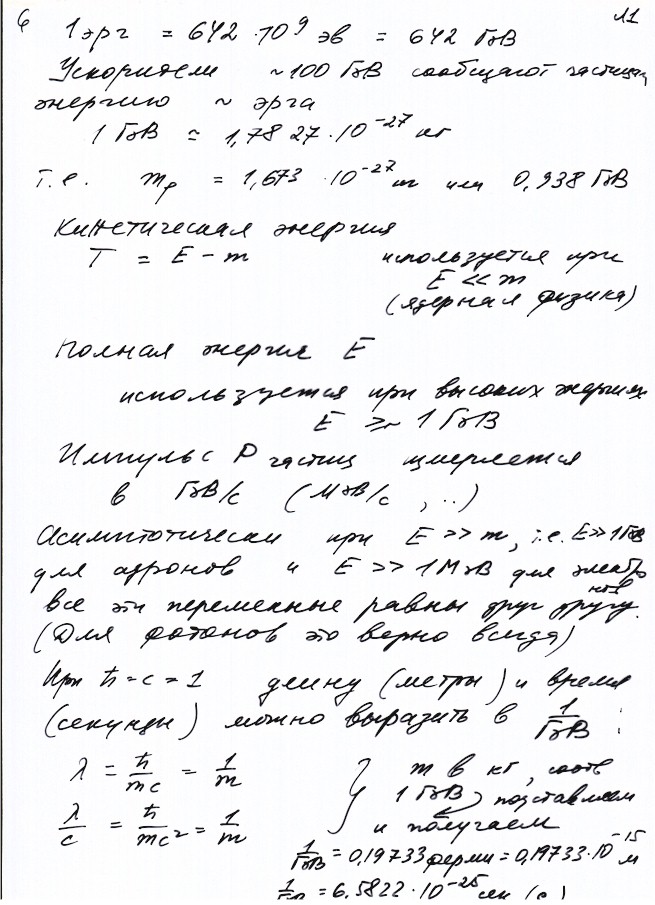 6 11
1 эрг = 642 · 10⁹ эв = 642 ГэВ
Ускорители ~100 ГэВ сообщают частицам
энергию ~ эрга
1 ГэВ ≃ 1,7827 · 10⁻²⁷ кг
т.е. mₚ = 1,673 · 10⁻²⁷ кг или 0,938 ГэВ
Кинетическая энергия
T = E − m используется при
E << m
(ядерная физика)
Полная энергия E
используется при высоких энергиях
E ≳ 1 ГэВ
Импульс P частиц измеряется
в ГэВ/с (МэВ/с, ..)
Асимптотически при E >> m, т.е. E >> 1 ГэВ
для адронов и E >> 1 МэВ для электро
нов
все эти переменные равны друг другу.
(Для фотонов это верно всегда)
При ħ = c = 1 длину (метры) и время
(секунды) можно выразить в 1/ГэВ :
λ = ħ/mc = 1/m } m в кг, соотв
1 ГэВ) подставляем
λ/c = ħ/mc² = 1/m и получаем
1/ГэВ = 0,19733 ферми = 0,19733 · 10⁻¹⁵ м
= 6,5822 · 10⁻²⁵ сек (с)